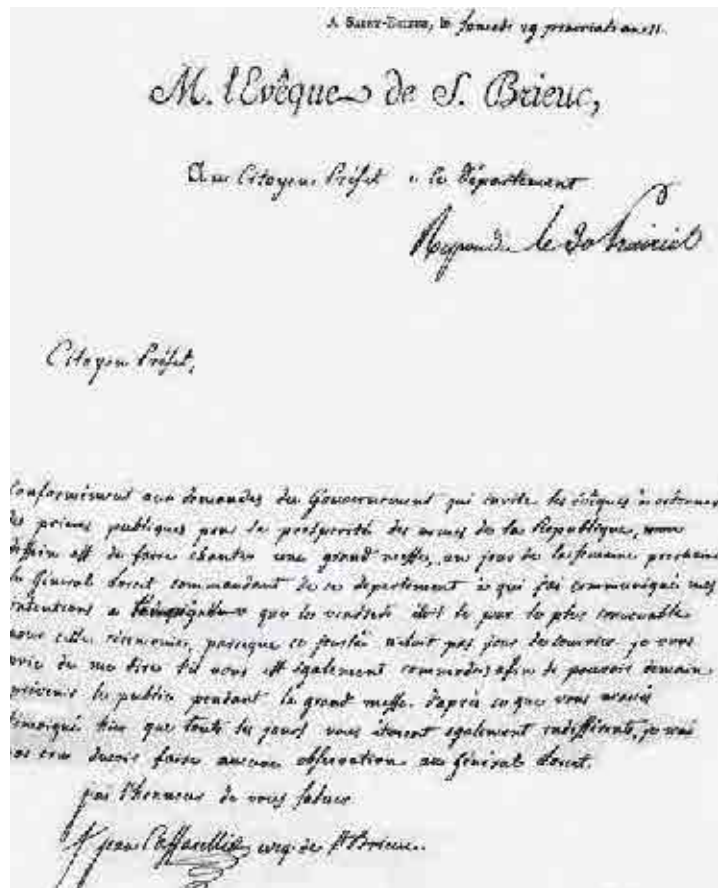 A SAINT-BRIEUC, le samedi 29 prairial an 11.
M. l'Evêque de S. Brieuc,
Au Citoyen Préfet de ce Département
Repondu le 30 Prairial
Citoyen Préfet,
Conformément aux demandes du Gouvernement qui invite les évêques à ordonner
des prieres publiques pour la prosperité des armes de la Republique, mon
dessein est de faire chanter une grand messe, un jour de la semaine prochaine
le Général commandant de ce departement à qui j'ai communiqué mes
intentions a que le vendredi étoit le jour le plus convenable
pour cette céremonie, parceque ce n'étoit pas jour de je vous
prie de me dire s'il vous est également commode, afin de pouvoir demain
prévenir le public pendant la grand messe. d'après ce que vous m'aviés
témoigné hier que tous les jours vous étoient egalement indifférents, je n'ai
pas cru devoir faire aucune observation au Général
j'ai l'honneur de vous saluer
jean Caffarelli evêq. de St Brieuc.